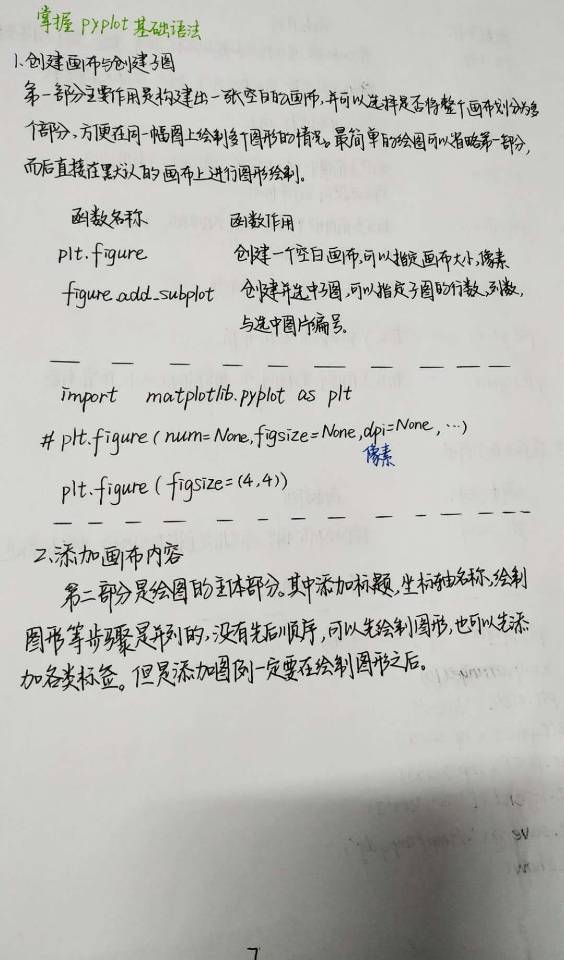 掌握 pyplot 基础语法
1.创建画布与创建子图
第一部分主要作用是构建出一张空白的画布,并可以选择是否将整个画布划分为多
个部分,方便在同一幅图上绘制多个图形的情况。最简单的绘图可以省略第一部分,
而后直接在默认的画布上进行图形绘制。
函数名称 函数作用
plt.figure 创建一个空白画布,可以指定画布大小,像素
figure.add_subplot 创建并选中子图,可以指定子图的行数,列数,
与选中图片编号。
import matplotlib.pyplot as plt
# plt.figure(num=None,figsize=None,dpi=None,…)
像素
plt.figure(figsize=(4,4))
2.添加画布内容
第二部分是绘图的主体部分。其中添加标题,坐标轴名称,绘制
图形等步骤是并列的,没有先后顺序,可以先绘制图形,也可以先添
加各类标签。但是添加图例一定要在绘制图形之后。
7